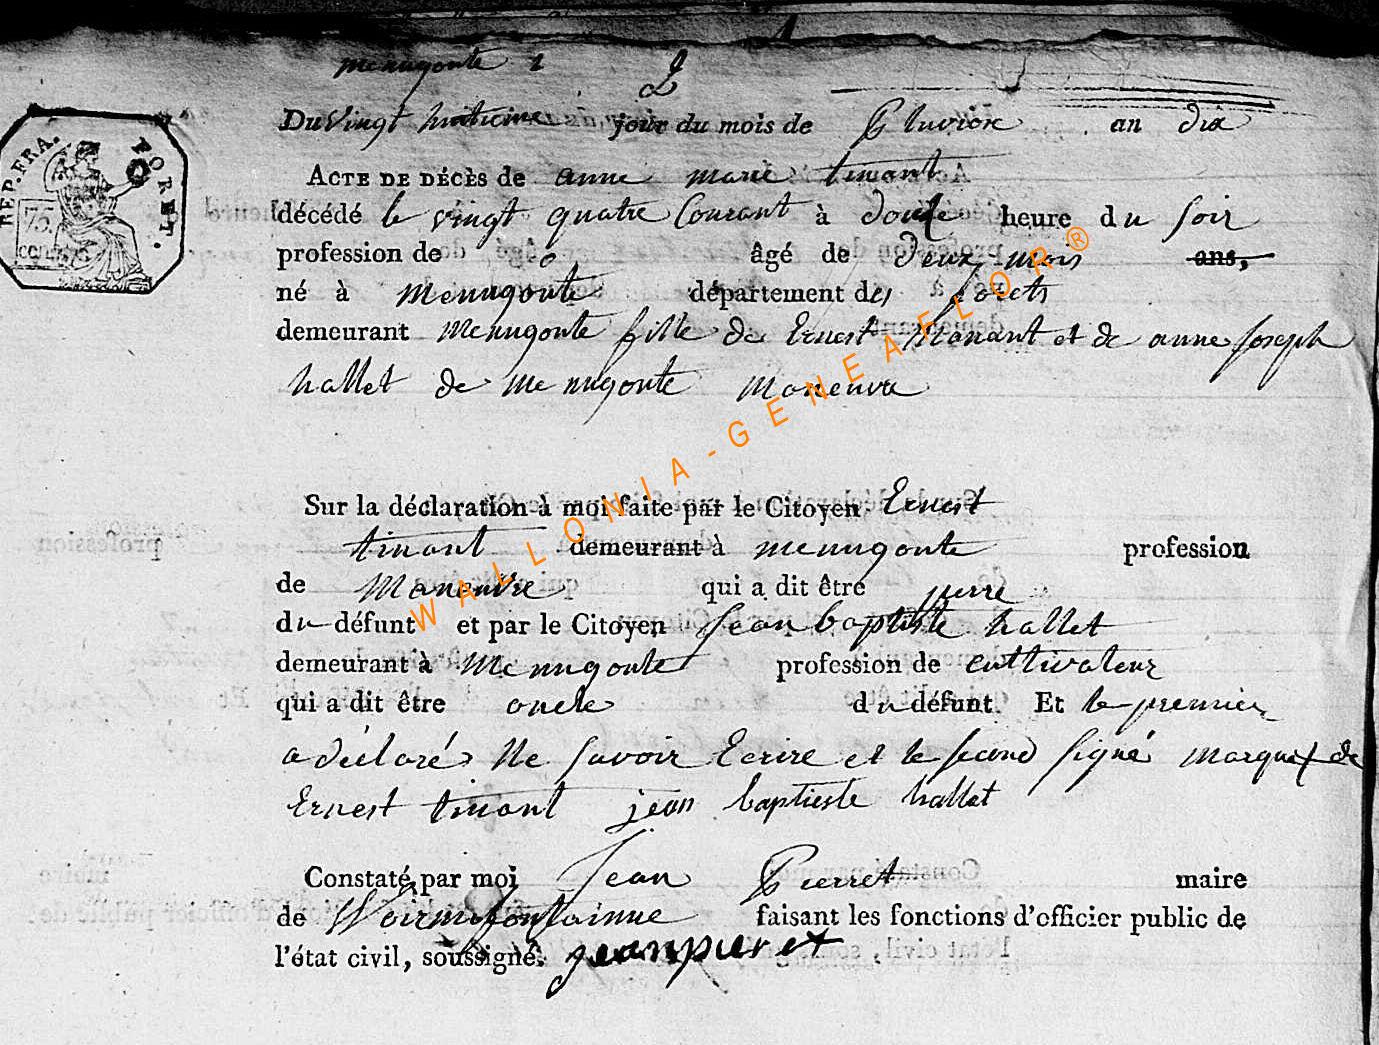 menugoute 2
2
Du vingt huitieme jour du mois de Pluviose an dix
REP. FRA. FORET.
75. CEN.
ACTE DE DÉCÈS de anne marie tinant
décédé le vingt quatre Courant à douze heure du soir
profession de o âgé de deux mois ans,
né à menugoute département des forets
demeurant menugoute fille de Ernest tinant et de anne joseph
hallet de menugoute maneuvre
Sur la déclaration à moi faite par le Citoyen Ernest
tinant demeurant à menugoute profession
de Maneuvre qui a dit être perre
du défunt et par le Citoyen Jean baptiste hallet
demeurant à Menugoute profession de cultivateur
qui a dit être oncle du défunt. Et le premier
a déclaré Ne savoir Ecrire et le second signé marque x de
Ernest tinant jean baptieste hallet
Constaté par moi Jean Pierret maire
de faisant les fonctions d'officier public de
l'état civil, soussigné. jeanpierret
WALLONIA-GENEAFLOR®